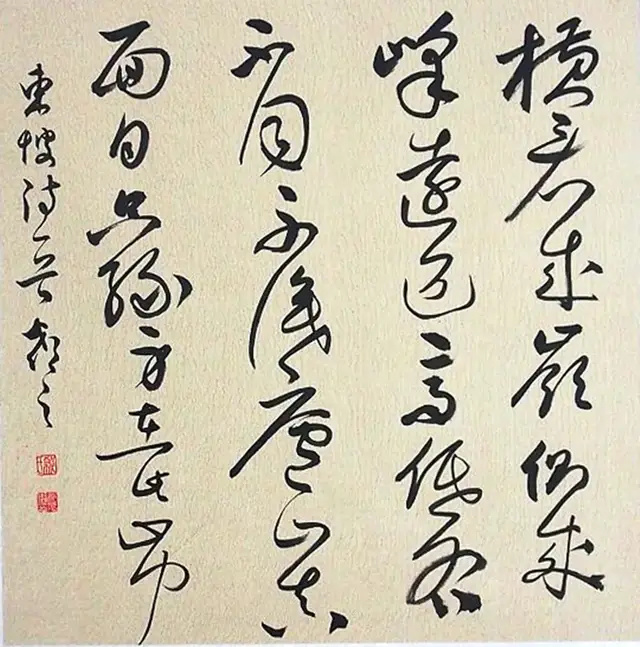 横看成嶺側成
峰遠近高低各
不同不識廬山真
面目只緣身在此山中
東坡詩一首 之